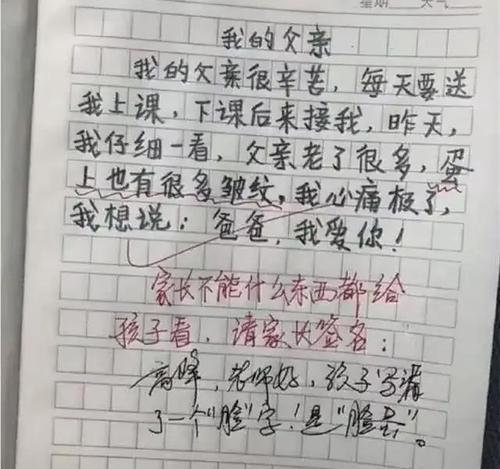 星期 天气
我的父亲
我的父亲很辛苦，每天要送
我上课，下课后来接我，昨天，
我仔细一看，父亲老了很多，蛋
上也有很多皱纹，我心痛极了，
我想说：爸爸，我爱你！
家长不能什么东西都给
孩子看，请家长签名：
高峰，老师好，孩子写漏
了一个"脸"字！是"脸蛋"。